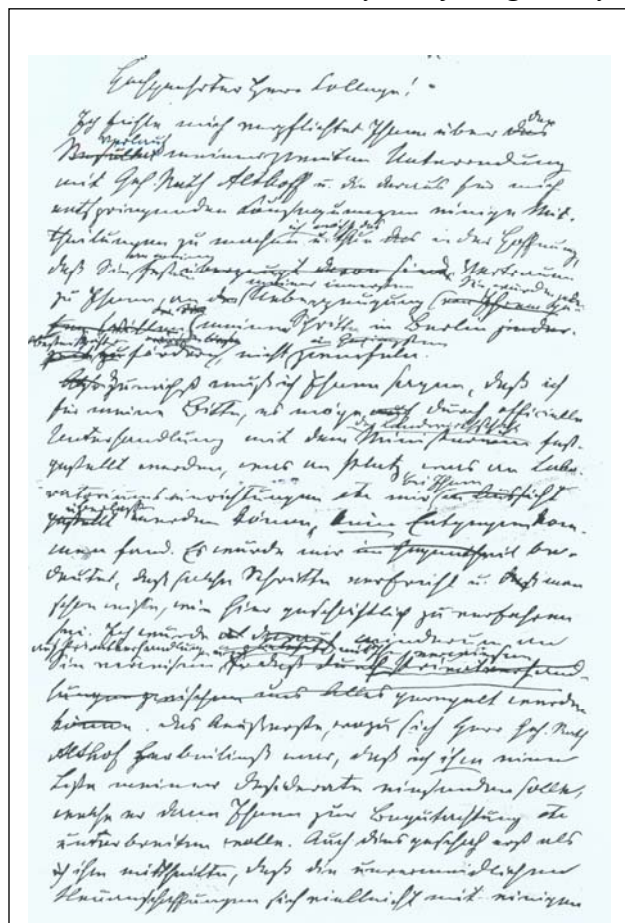 Hochgeehrter Herr College!
Ich fühle mich verpflichtet Ihnen über den
Verlauf meiner zweiten Unterredung
mit Geh. Rath Althoff u. die daraus für mich
entspringenden Consequenzen einige Mit-
theilungen zu machen u. in der Hoffnung,
daß Sie Vertrauen
zu Ihnen, an der Ueberzeugung
meine Schritte in Berlin
fördern, nicht
Zunächst muß ich Ihnen sagen, daß ich
für meine Bitte, es möge durch officielle
Unterhandlung mit dem Ministerium fest-
gestellt werden, was an Platz, was an Labo-
ratoriumseinrichtungen etc mir bei Ihnen
überlassen werden könne, kein Entgegenkom-
men fand. Es wurde mir im Gegentheil be-
deutet, daß solche Schritte verfrüht u. daß man
schon wisse, wie hier geschäftlich zu verfahren
sei. Ich wurde wiederum an
Sie verwiesen, Privatverhand-
lungen zwischen uns Alles geregelt werden
könne. Das Äußerste, wozu sich Herr Geh. Rath
Althof herbeiließ war, daß ich ihm eine
Liste meiner Desiderate einsenden solle,
welche er dann Ihnen zur Begutachtung etc
unterbreiten wolle. Auch dies geschah erst als
ich ihm mittheilte, daß die unvermeidlichen
Neuanschaffungen sich vielleicht mit einigen